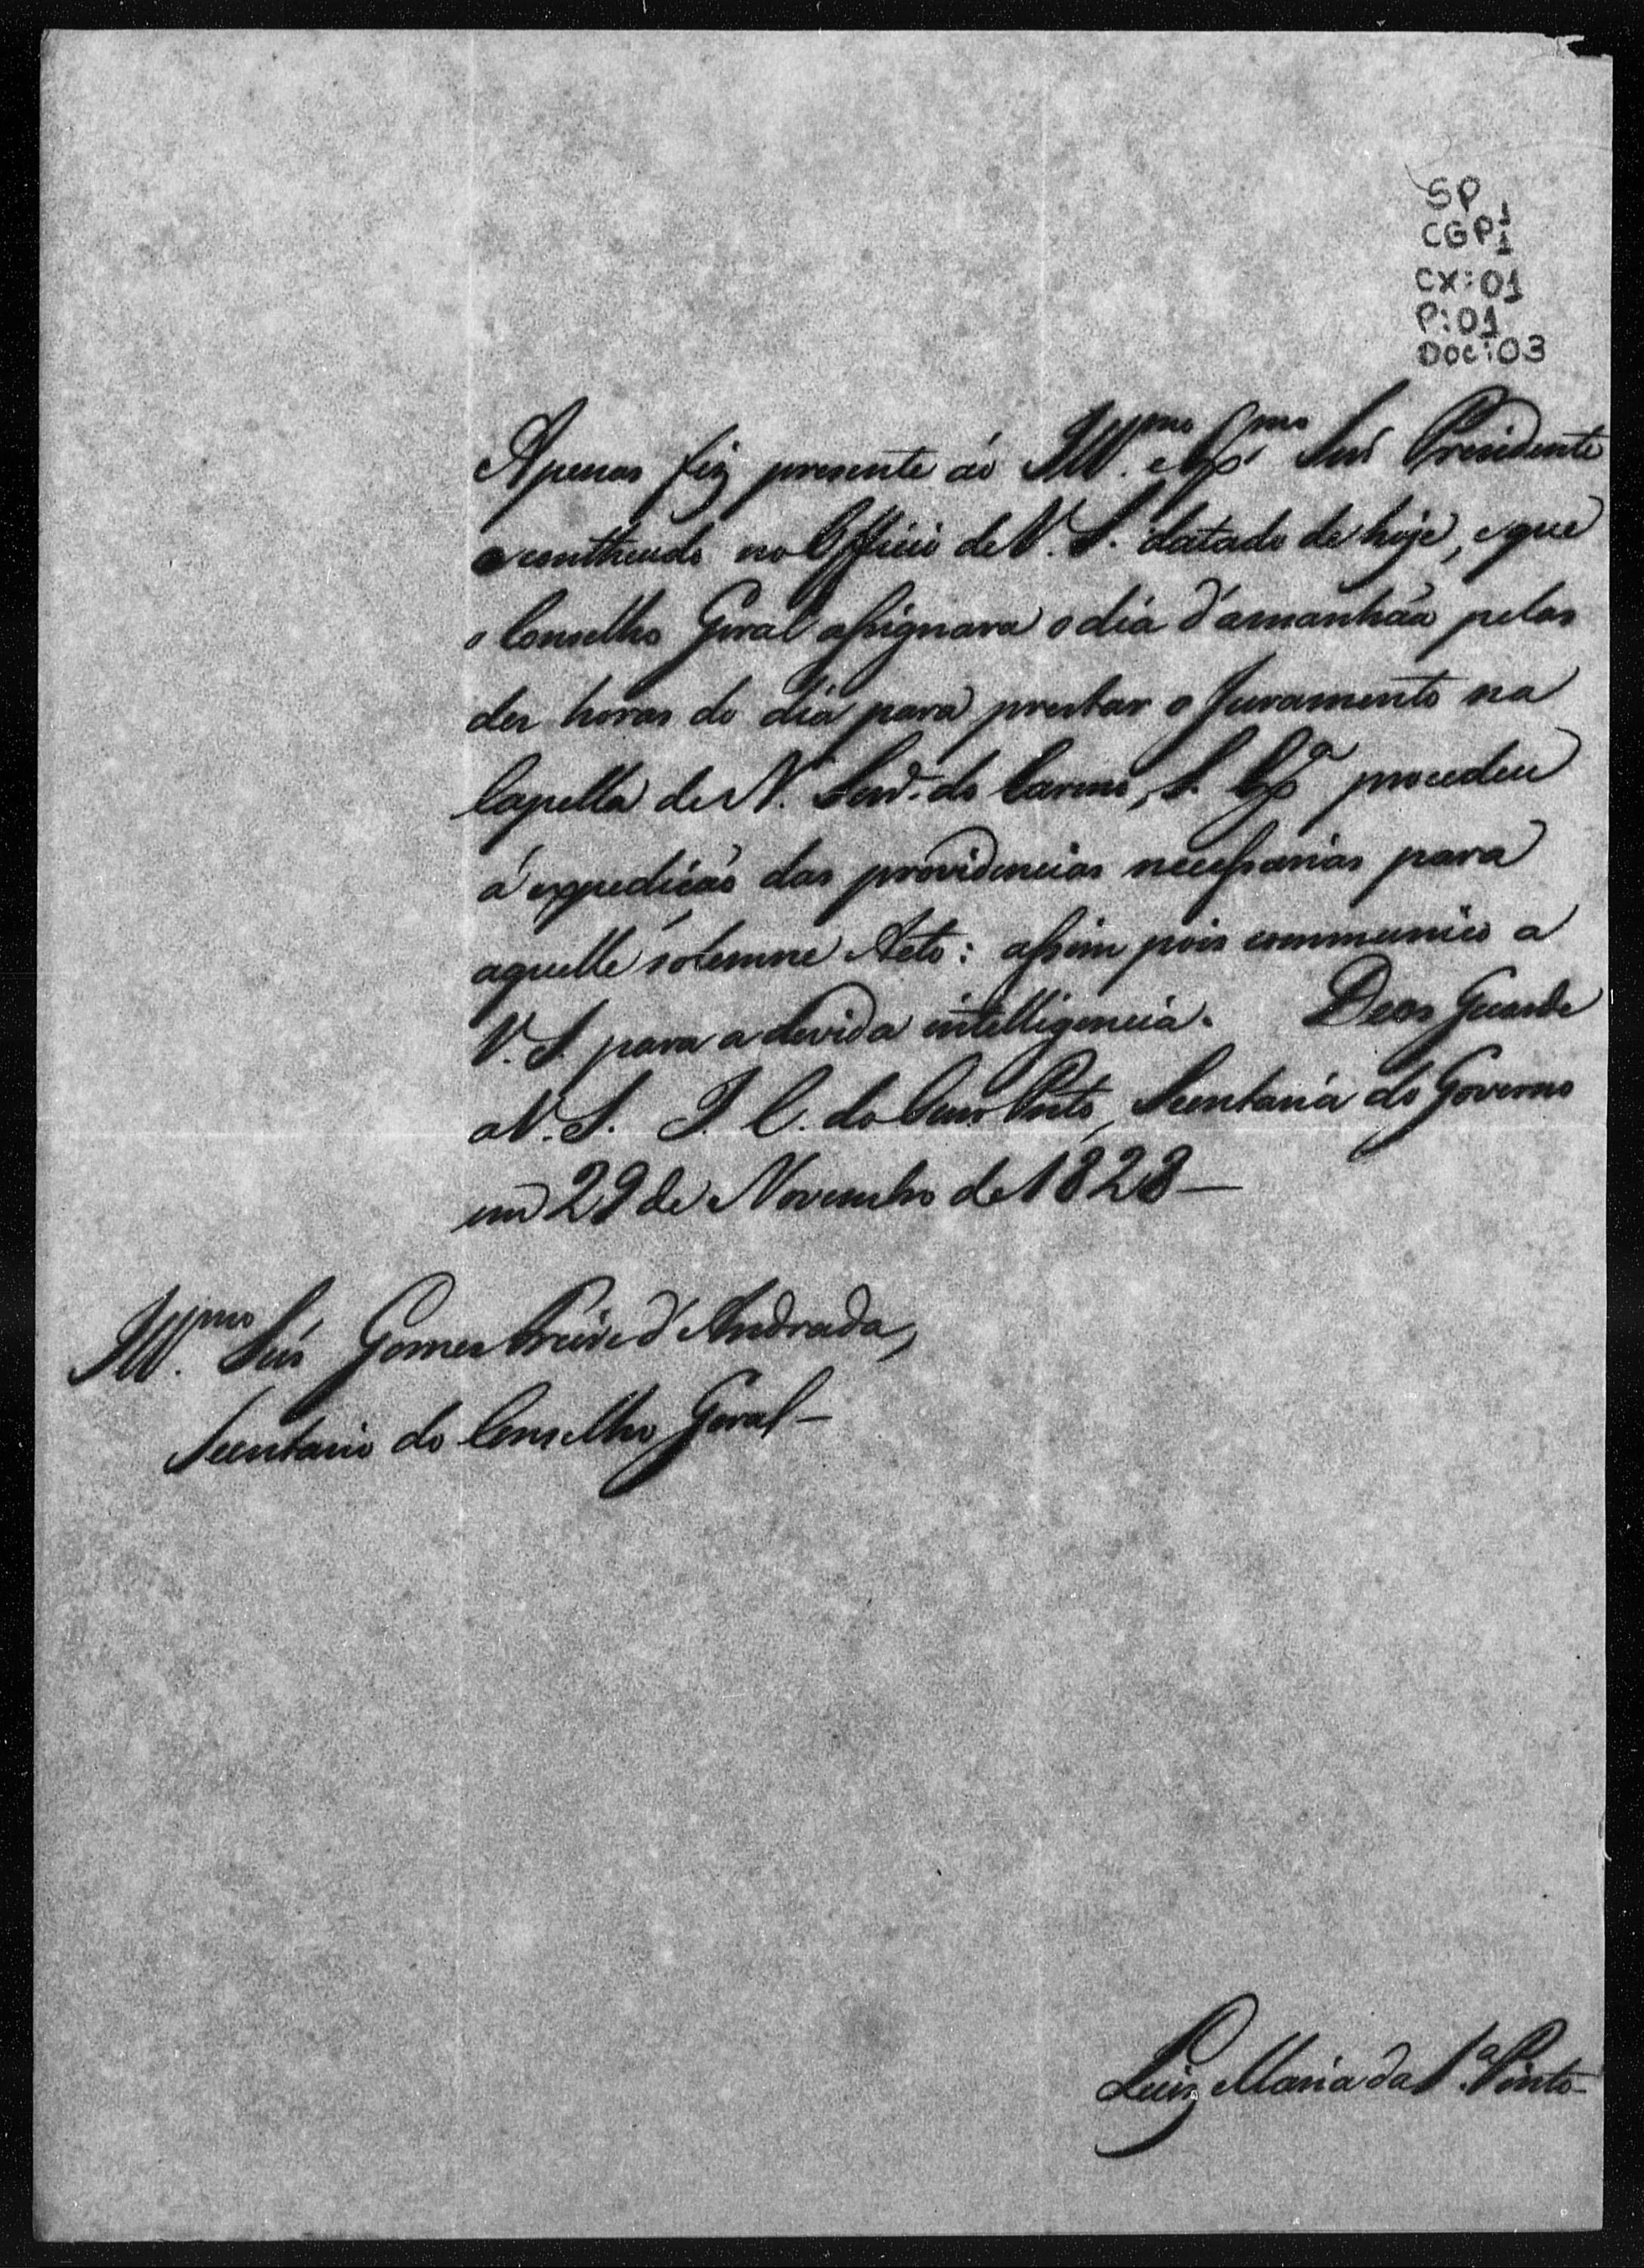 SP 1
CGP 1
CX: 01
P: 01
DOC: 03
Apenas fiz presente ao Ill.mo e Ex.mo Snr Presidente
o contheudo no Officio de V. S. datado de hoje, e que
o Conselho Geral assignara o dia d'amanhãa pelas
des horas do dia para prestar o Juramento na
Capella de N. Senr.a do Carmo, S. Ex.a procedeu
á expedição das providencias necessarias para
aquelle solemne Acto: assim pois communico a
V. S. para a devida intelligencia. Deos Guarde
a V. S. I. C. do Ouro Preto, Secretaria do Governo
em 29 de Novembro de 1828 —
Ill.mo Snr Gomes Freire d'Andrada,
Secretario do Conselho Geral —
Luiz Maria da S.a Pinto